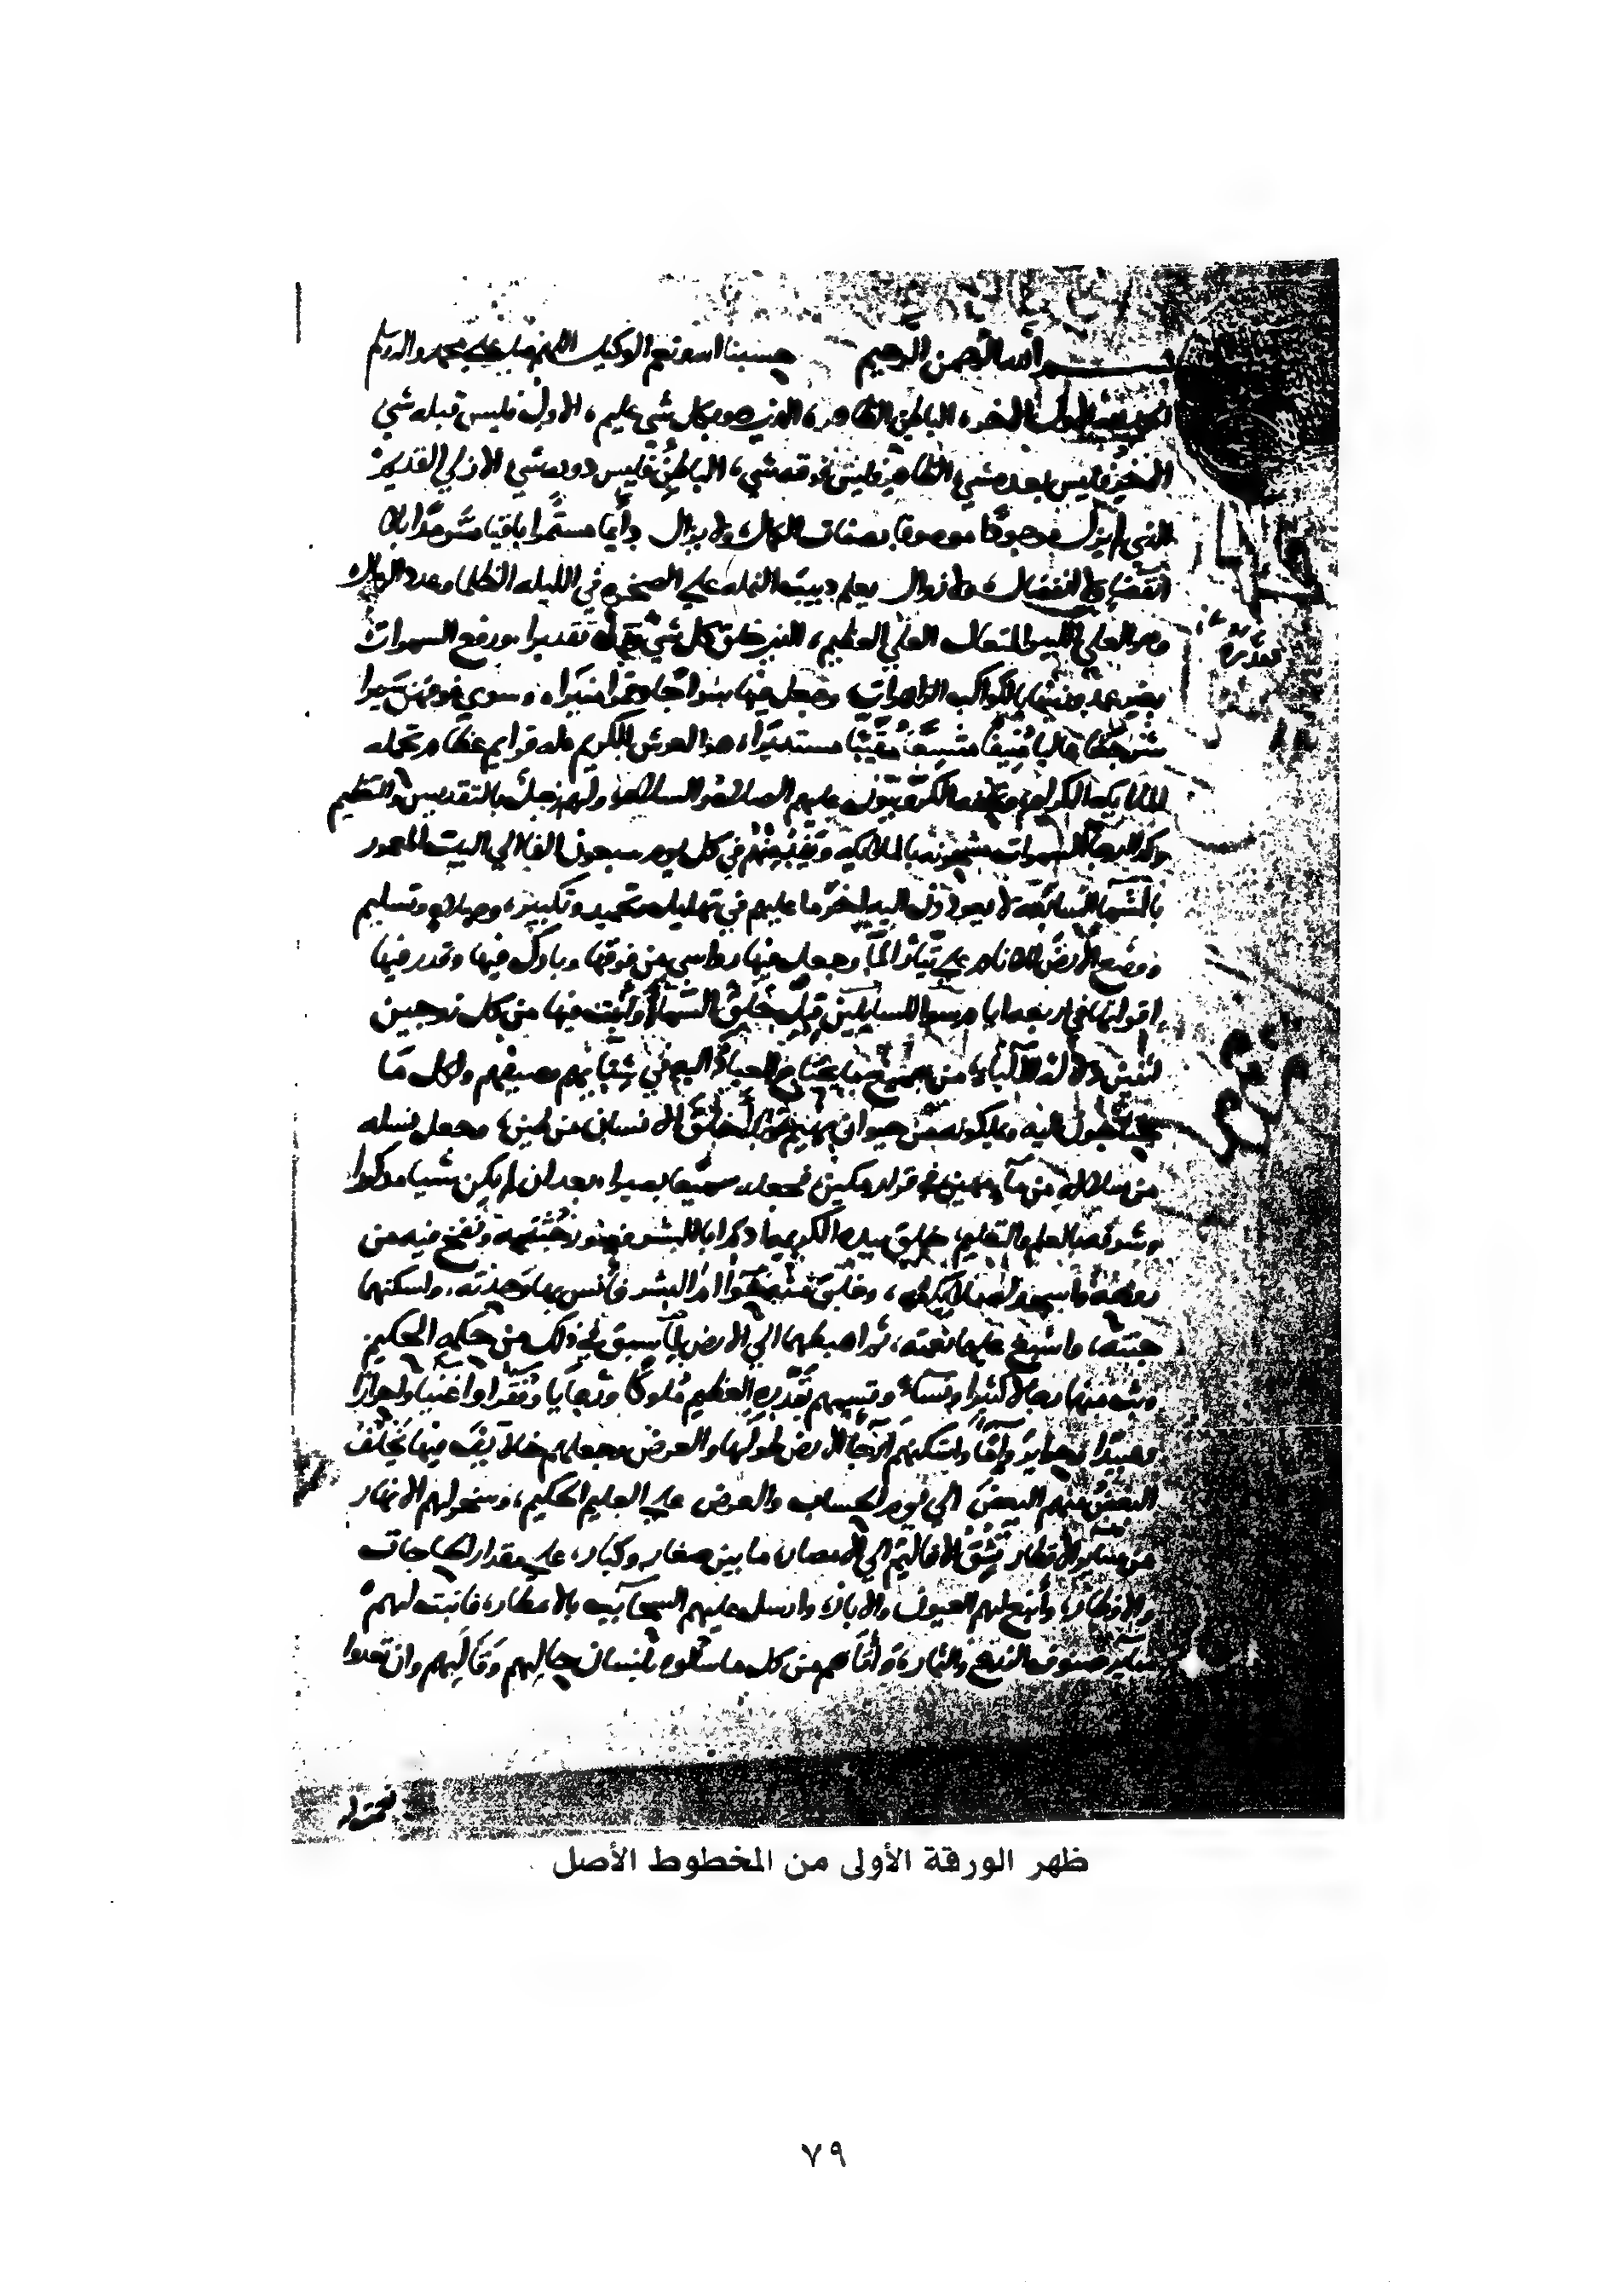 بسم الله الرحمن الرحيم حسبنا الله ونعم الوكيل اللهم صل على محمد وآله وسلم
الأول الآخر، الباطن الظاهر، الذي هو بكل شي عليم، الاول فليس قبله شي
الآخر فليس بعده شي، الظاهر فليس فوقه شي، الباطن فليس دونه شي الازلي القديم
الذي لم يزل موجودًا موصوفا بصفات الكمال، ولا يزال دايمًا مستمرا باقيا سرمدًا بلا
انقضا ولا انفصال، ولا زوال يعلم دبيب النمله على الصخره في الليله الظلما وعدد الرمال
وهو العلي الكبير المتعال العلي العظيم، الذي خلق كل شي فقدره تقديرا، ورفع السموات
بغير عمد وزينها بالكواكب الزاهرات وجعل فيها سراجًا وقمرا منيرًا، وسوى فوقهن سريرا
شرجعًا عاليا منيفًا متسعًا مقببًا مستديرًا، هذا العرش الكريم له قوايم عظام تحمله
الملايكه الكرام، وتحفه الكروبيون عليهم الصلاة والسلام، ولهم زجل بالتقديس والتعظيم
وكذا ارجا السموات مشحونه بالملايكه ويفد منهم في كل يوم سبعون الفا الى البيت المعمور
بالسما السابعة لا يعودون اليه اخر ما عليهم في تهليل وتحميد وتكبير، وصلاة وتسليم
ووضع الارض للانام على تيار الما وجعل فيها رواسي من فوقها وبارك فيها وقدر فيها
اقواتها في اربعه ايام سوا للسايلين قبل خلق السما، وانبت فيها من كل زوجين
اثنين دلالة للالبا، من جميع ما يحتاج العباد اليه في شتايهم وصيفهم ولكل ما
يحتاجون اليه ويملكونه من حيوان بهيم وبدأ خلق الانسان من طين، وجعل نسله
من سلاله من ما مهين في قرار مكين، فجعله سميعا بصيرا، بعد ان لم يكن شيا مذكورا
وشرفه بالعلم والتعليم، خلق بيده الكريمه ادم ابا البشر وصور جثته ونفخ فيه من
روحه واسجد له ملايكته، وخلق منه حوا ام البشر فانس بها وحدته، واسكنها
جنته، واسبغ عليهما نعمته، ثم اهبطهما الى الارض لما سبق في ذلك من حكمه الحكيم
وبث منهما رجالا كثيرا ونسا، وقسمهم بقدره العظيم ملوكًا ورعايا وفقرا واغنيا واحرارًا
وعبيدًا وحراير وإما واسكنهم ارجا الارض طولها والعرض وجعلهم خلايف فيها يخلف
البعض منهم البعض الى يوم الحساب والعرض على العليم الحكيم، وسخر لهم الانهار
من ساير الاقطار تشق الاقاليم الى الامصار ما بين صغار وكبار، على مقدار الحاجات
والاوطار، وأنبع لهم العيون والابار، وارسل عليهم السحايب بالامطار، فانبت لهم
ساير صنوف الزرع والثمار، وآتاهم من كل ما سالوه بلسان حالهم وقالهم وان تعدوا
نعمت الله
ظهر الورقة الأولى من المخطوط الأصل
٧٩